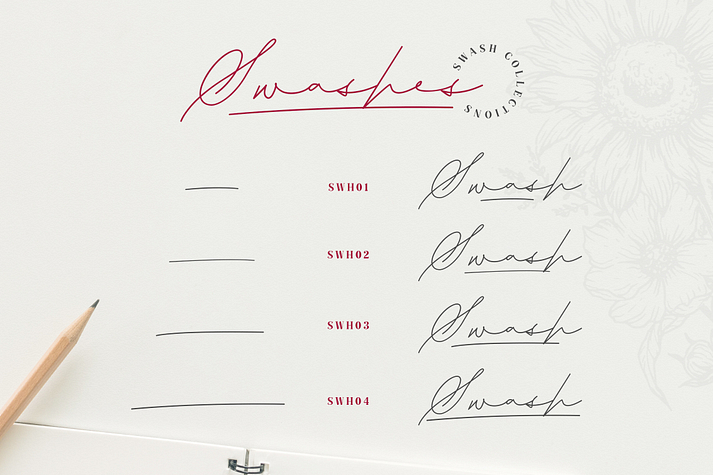 Swashes
SWASH COLLECTIONS
SWH01 Swash
SWH02 Swash
SWH03 Swash
SWH04 Swash